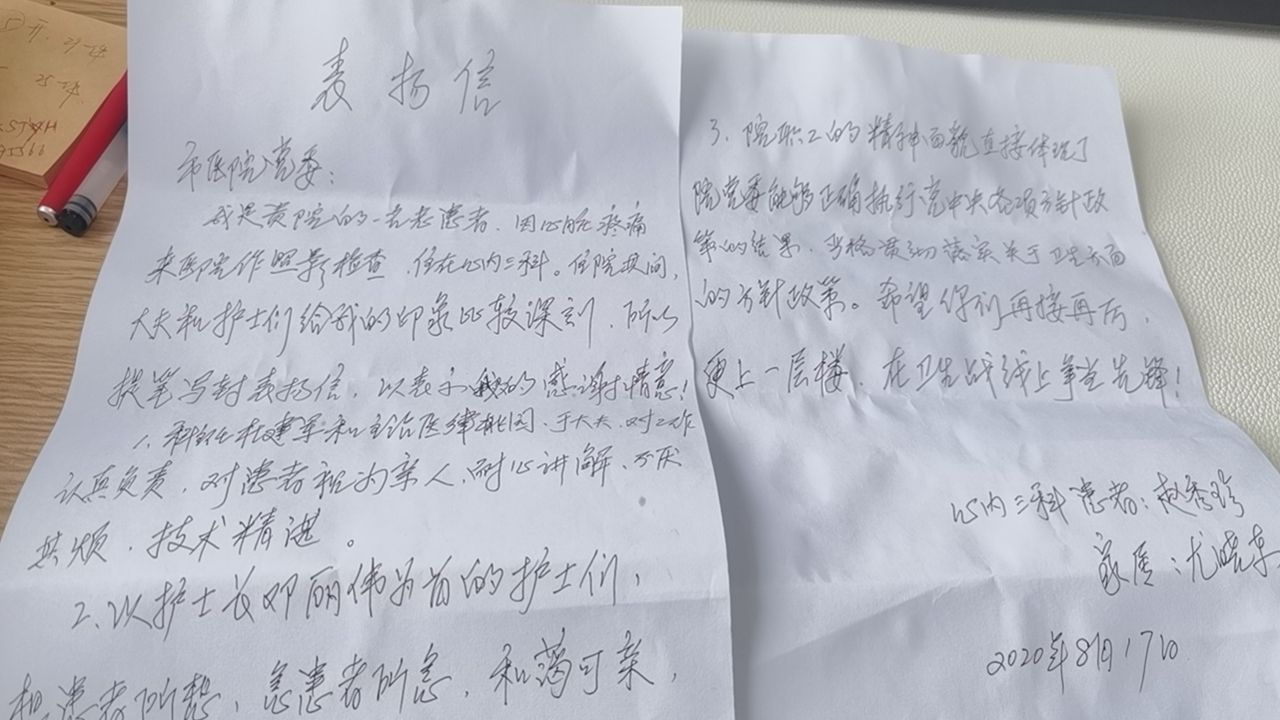 表扬信
市医院党委：
我是贵院的一名老患者，因心脏疼痛
来医院作照影检查，住在心内三科。住院期间，
大夫和护士们给我的印象比较深刻，所以
提笔写封表扬信，以表示我的感谢情意！
1、科主任 建军和主治医 、于大夫，对工作
认真负责，对患者视为亲人，耐心讲解，不厌
其烦，技术精湛。
2、以护士长邓丽伟为首的护士们，
想患者所想，急患者所急，和蔼可亲，
3、院职工的精神面貌直接体现了
院党委能够正确执行党中央各项方针政
策的结果，严格贯彻 关于卫生方面
的方针政策。希望你们再接再厉，
更上一层楼，在卫生战线上争当先锋！
心内三科患者：赵秀珍
家属：尤晓东
2020年8月17日
25
95566